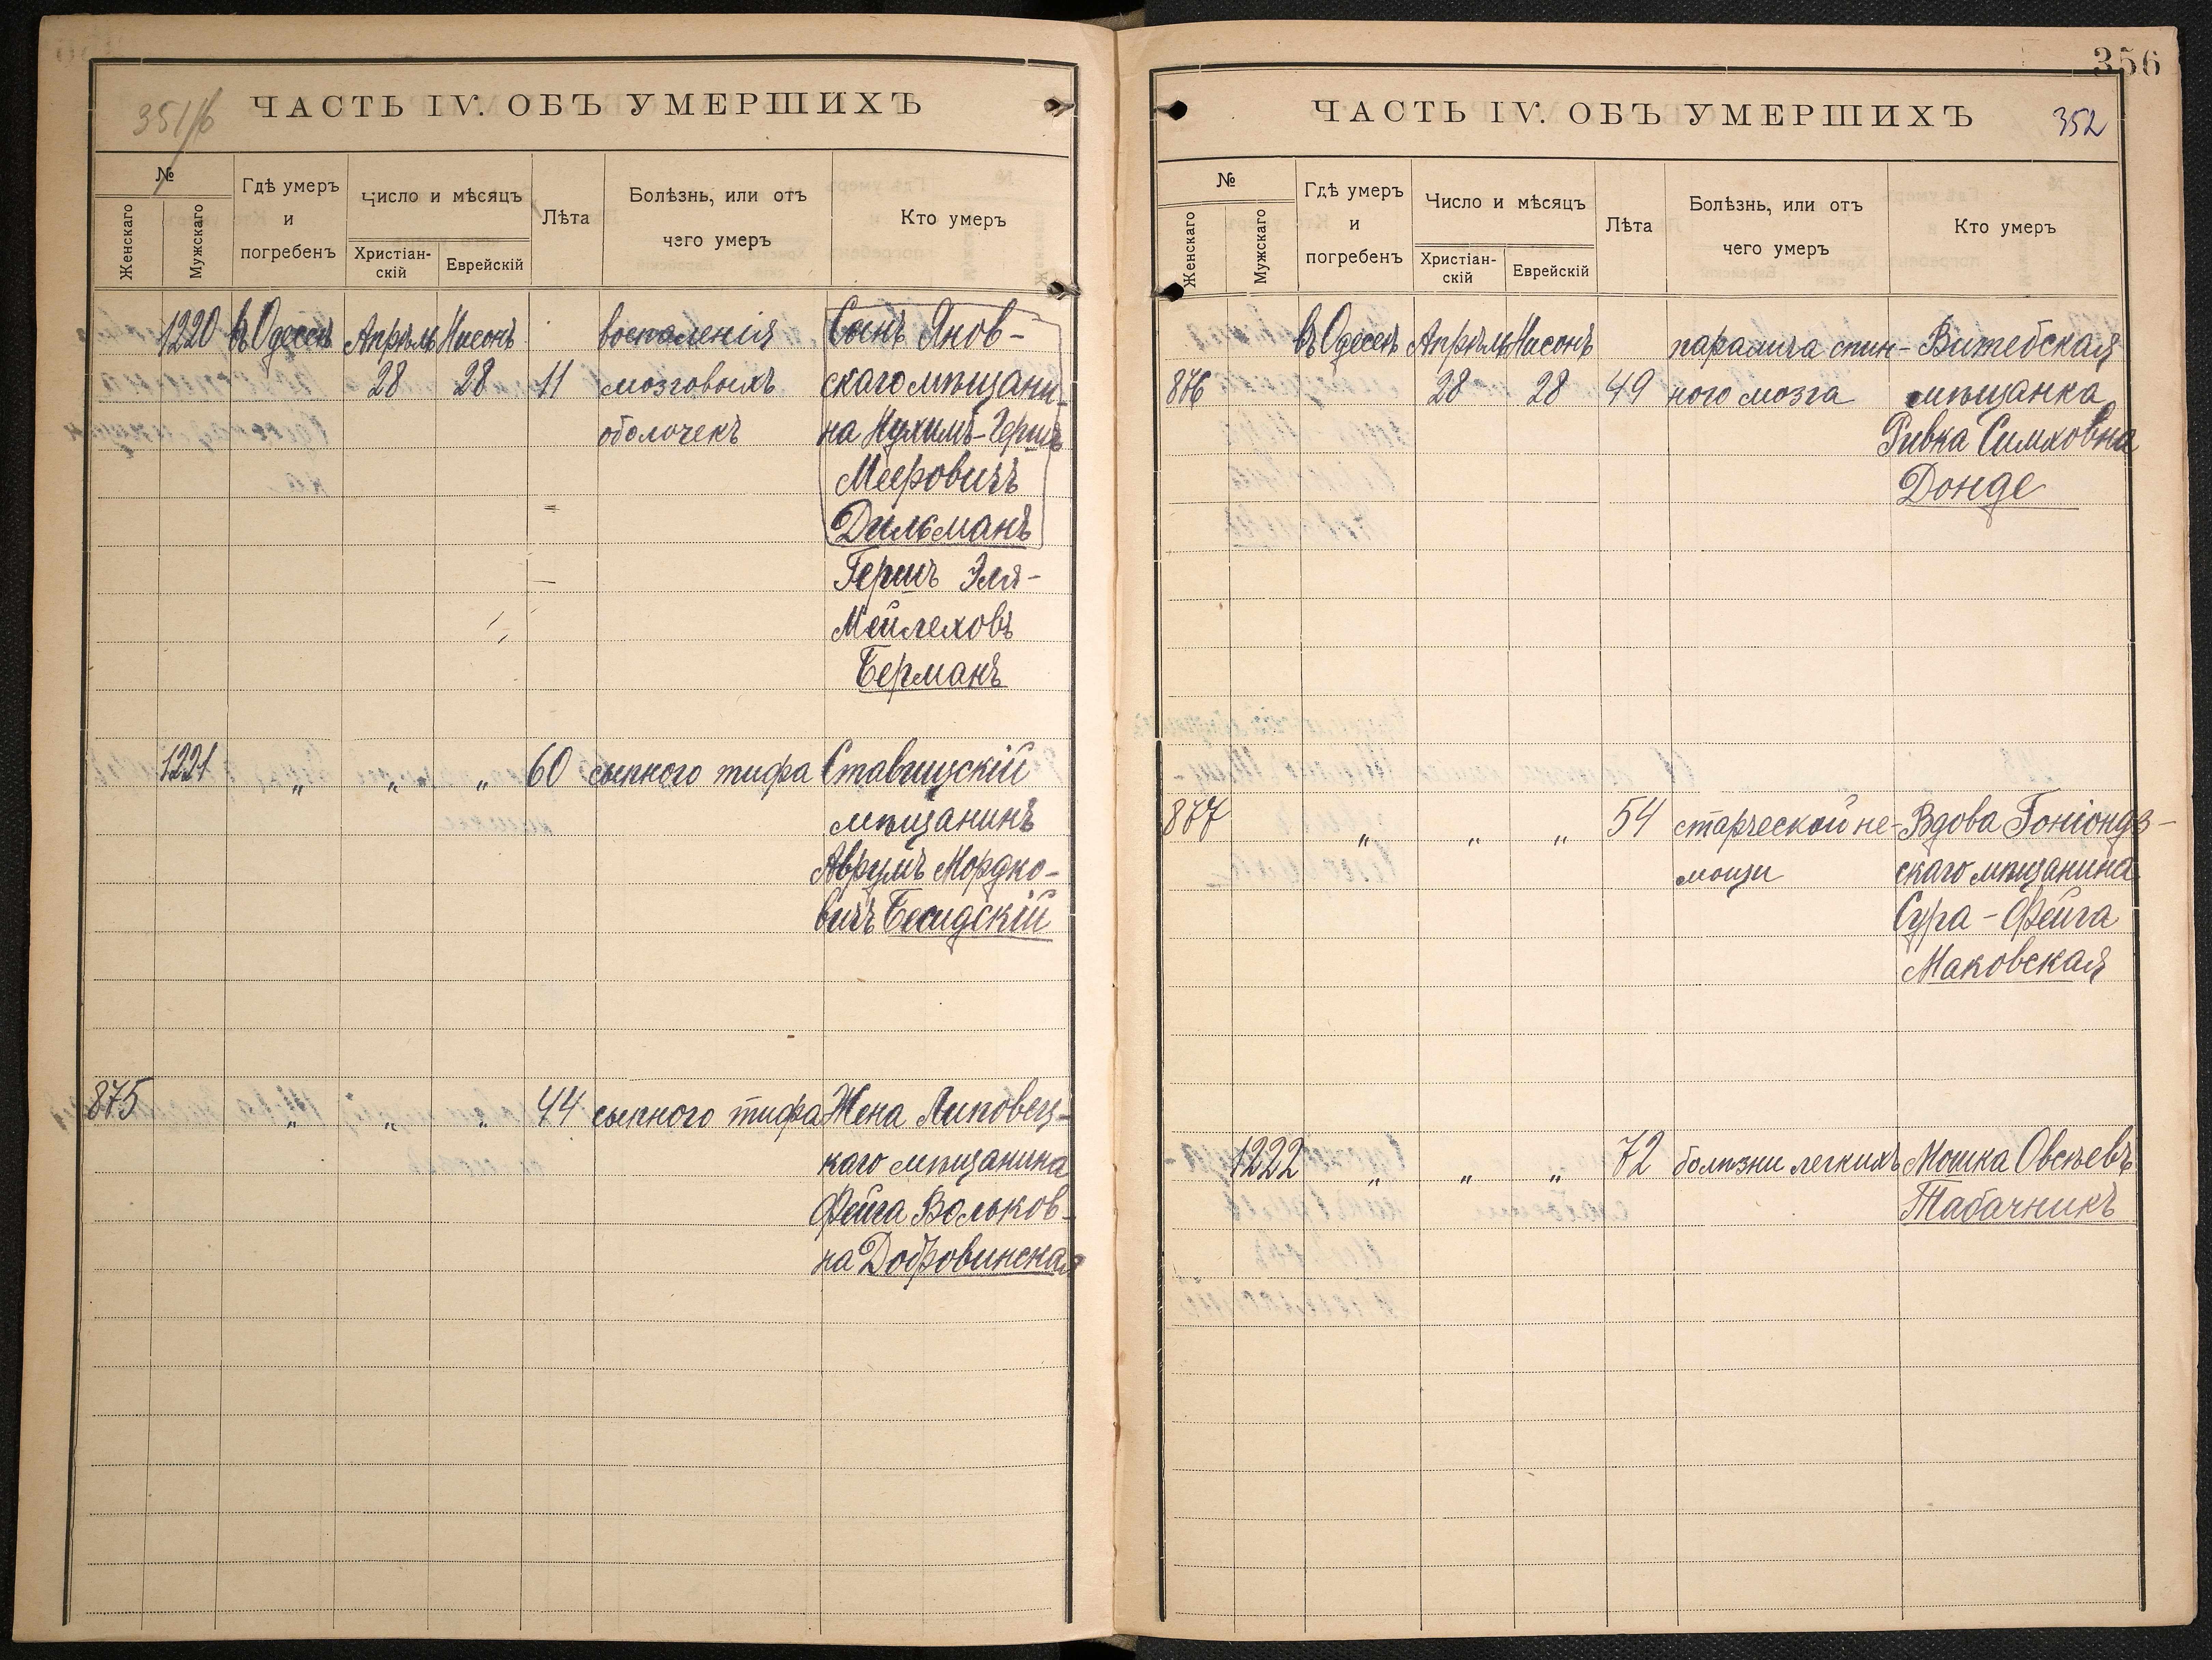 351/б
ЧАСТЬ IV. ОБЪ УМЕРШИХЪ
№
Женскаго
Мужскаго
Гдѣ умеръ
и
погребенъ
Число и мѣсяцъ
Христіан-
скій
Еврейскій
Лѣта
Болѣзнь, или отъ
чего умеръ
Кто умеръ
1220 въ Одессѣ Апрѣль Нисонъ воспаленія Сынъ Янов-
28 28 11 мозговыхъ скаго мѣщани-
оболочекъ на Нухимъ-Гершъ
Мееровичъ
Дильманъ
Гершъ Эля-
Мейлеховъ
Берманъ
1221 „ „ „ 60 сыпного тифа Ставищскій
мѣщанинъ
Аврумъ Мордко-
вичъ Бесидскій
875 „ „ „ 44 сыпного тифа Жена Липовец-
каго мѣщанина
Фейга Вольков-
на Добровинская
356
ЧАСТЬ IV. ОБЪ УМЕРШИХЪ
352
№
Женскаго
Мужскаго
Гдѣ умеръ
и
погребенъ
Число и мѣсяцъ
Христіан-
скій
Еврейскій
Лѣта
Болѣзнь, или отъ
чего умеръ
Кто умеръ
въ Одессѣ Апрѣль Нисонъ паралича спин- Витебская
876 28 28 49 ного мозга мѣщанка
Ривка Симховна
Донде
877 „ „ „ 54 старческой не- Вдова Гоніондз-
мощи скаго мѣщанина
Сура-Фейга
Маковская
1222 „ „ „ 72 болѣзни легкихъ Мошка Овсѣевъ
Табачникъ